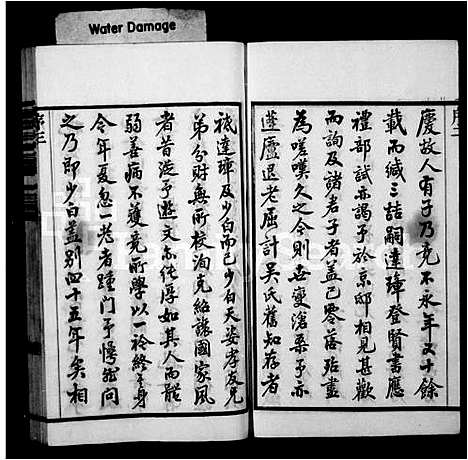 Water Damage
序二
慶故人有子乃竟不永年又十餘
載而緘三詰嗣達璋登賢書應
禮部試亦謁予於京邸相見甚歡
而詢及諸君子者蓋已零落殆盡
為嗟嘆久之今則世變滄桑予亦
蓬廬退老屈計吳氏舊知存者
祗達璋及少白而已少白天姿孝友兄
弟分財無所校洵克紹讓國家風
者昔從予遊文亦純厚如其人而體
弱善病不獲竟所學以一衿終其身
今年夏忽一老者踵門予愕然問
之乃即少白蓋別四十五年矣相
序三
FamilySearch